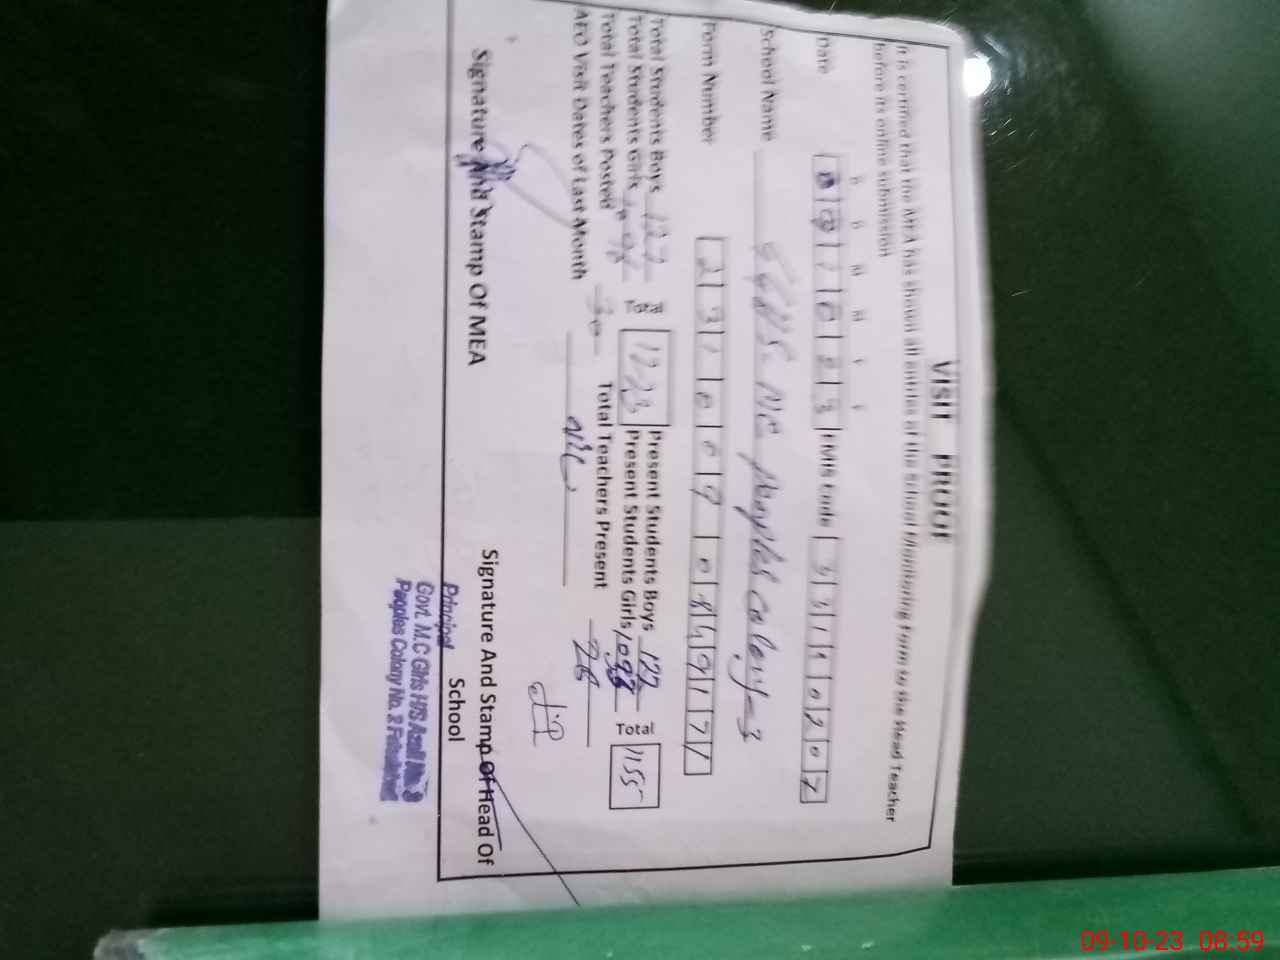 VISIT PROOF
It is certified that the MEA has shown all entries of the School Monitoring Form to the Head Teacher
before its online submission
D D M M Y Y
Date 0 9 1 0 2 3 EMIS Code 3 3 1 1 0 2 0 7
School Name GGHS. MC peoples colony-3
Form Number 2 3 1 0 0 9 0 8 4 9 1 7 1
Total Students Boys 127 Present Students Boys 122
Total Students Girls 1096 Total 1223 Present Students Girls Total 1155
Total Teachers Posted 30 Total Teachers Present 28
AEO Visit Dates of Last Month NIL
Signature And Stamp Of MEA Signature And Stamp Of Head Of
School
Principal
Govt. M.C Girls H/S
Peoples Colony No. 2 Faisalabad
09-10-23 08:59